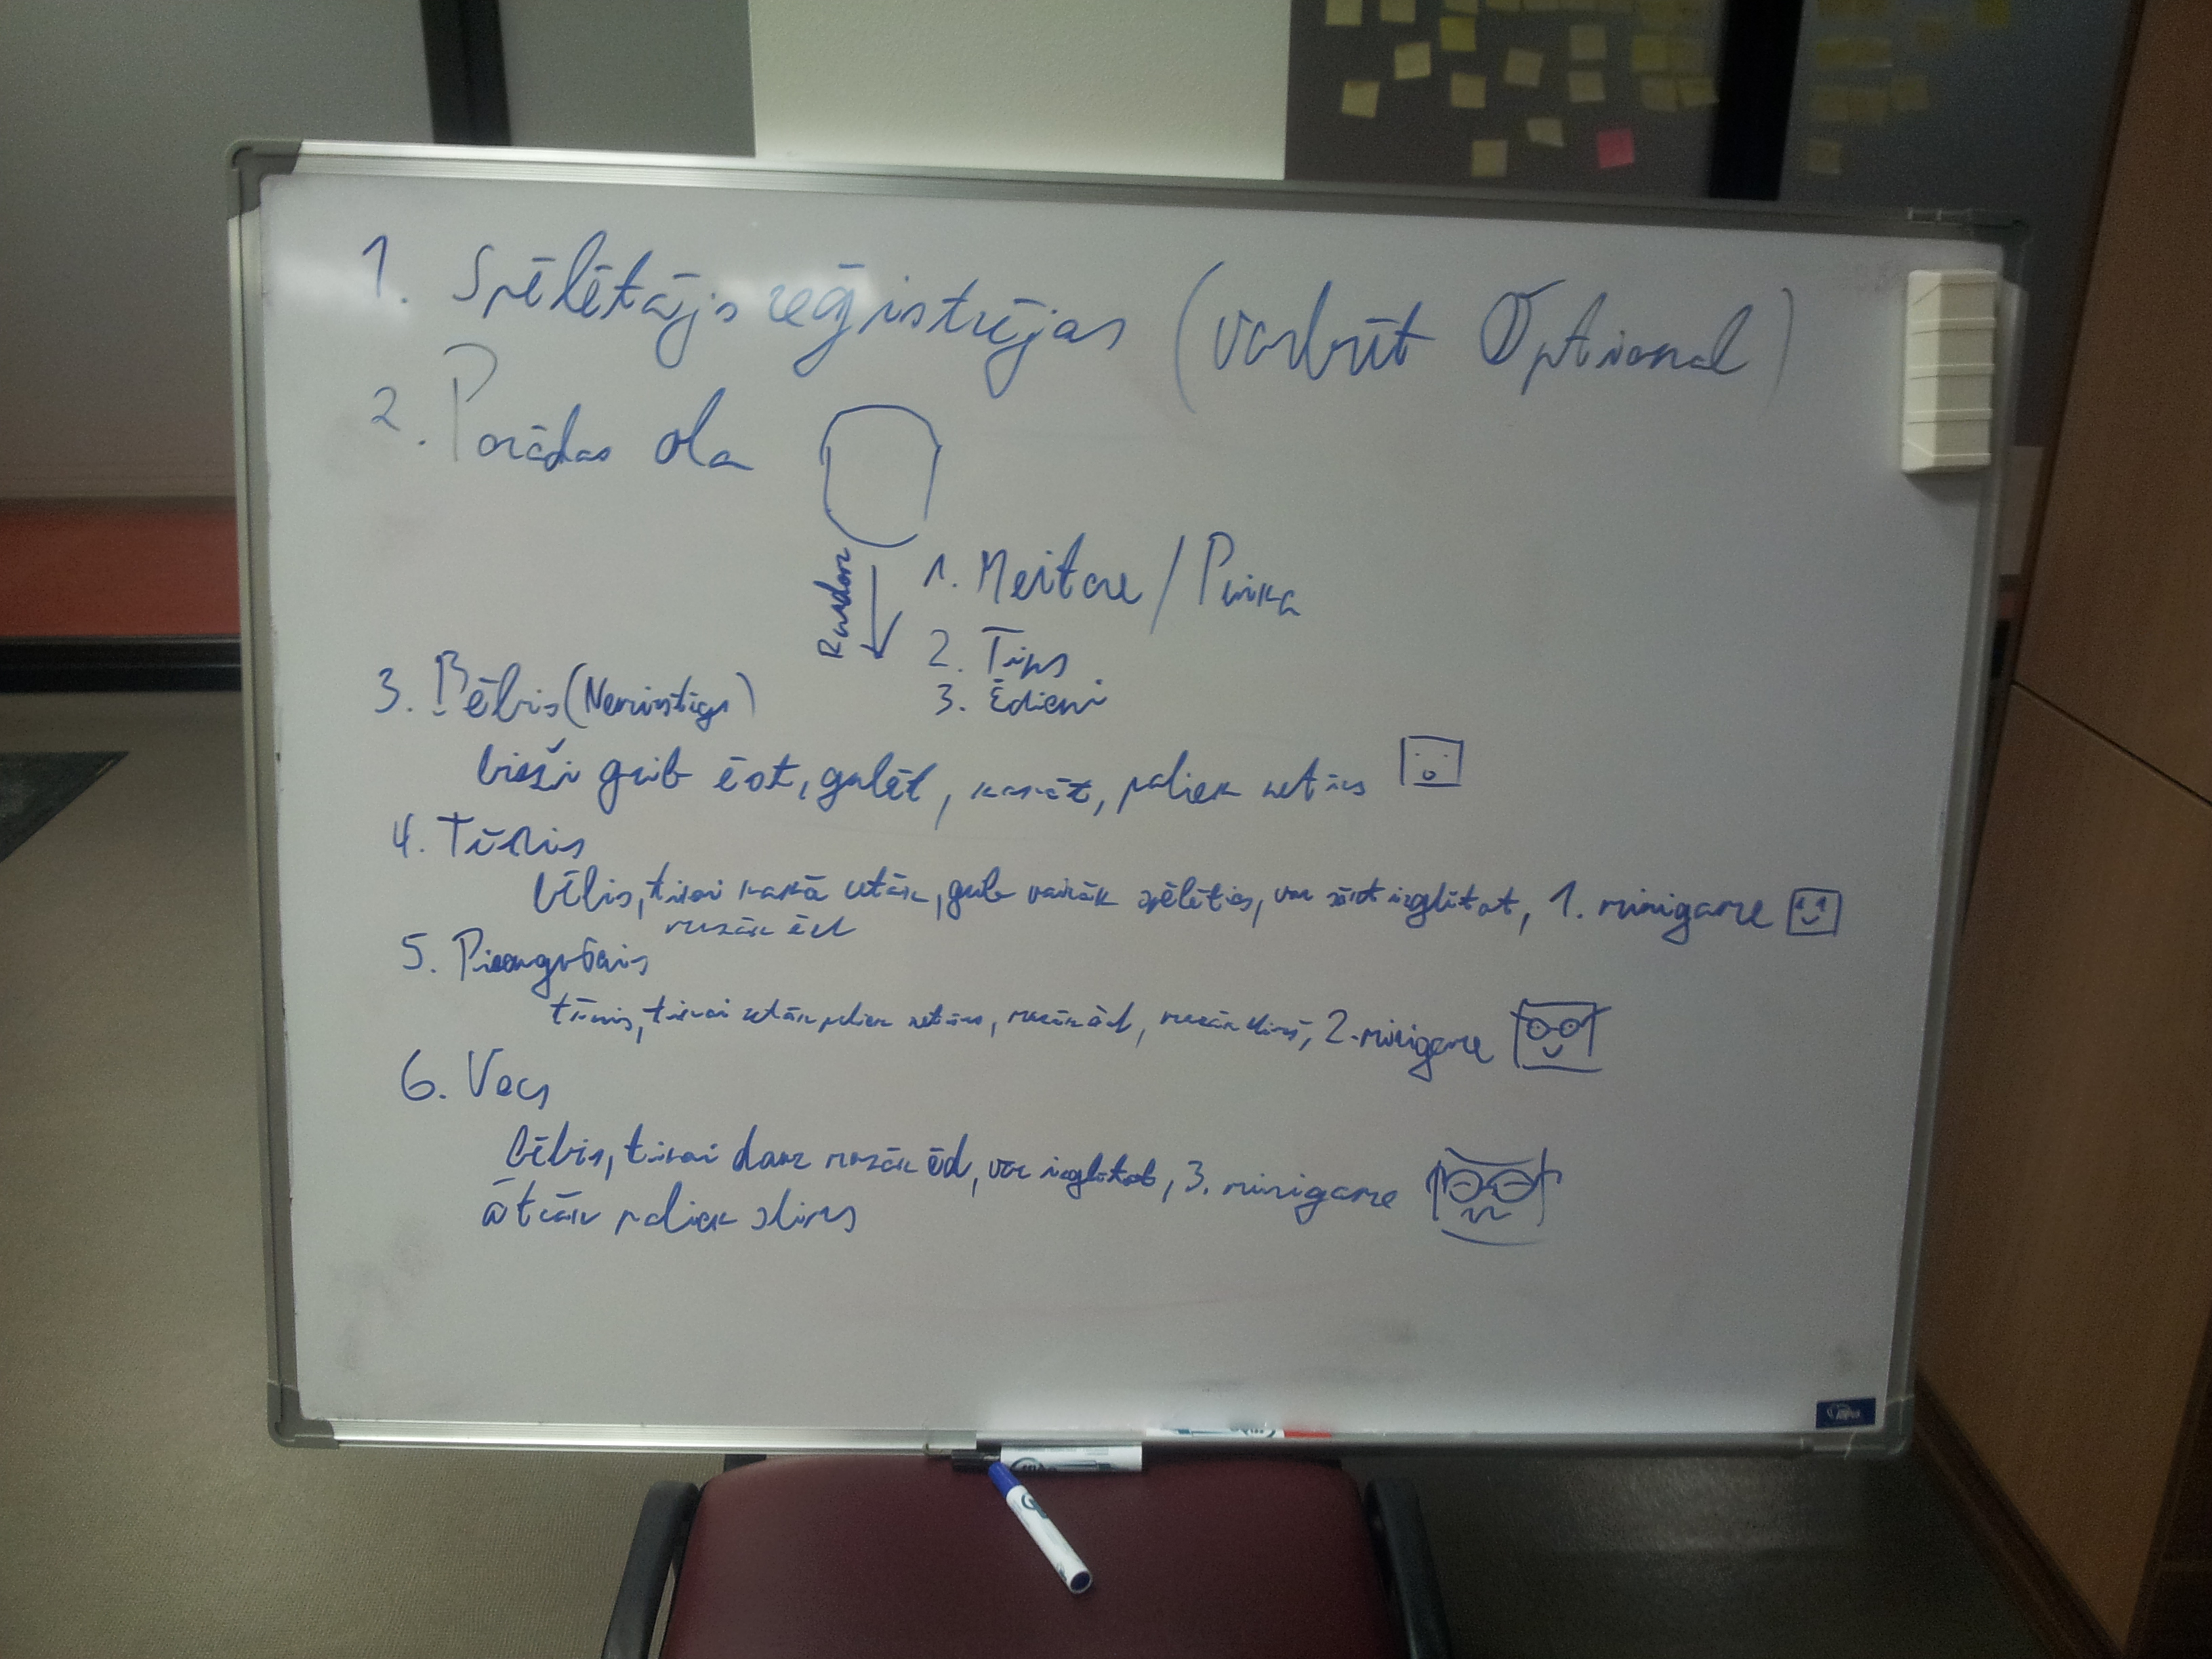 1. Spēlētājs reģistrējas (varbūt Optional)
2. Parādas ola
Random
1. Meitene / Puika
2. Tips
3. Ēdieni
3. Bēbis (Nemirstīgs)
bieži grib ēst, gulēt, kakāt, paliek netīrs
4. Tīnis
bēbis, tikai kakā retāk, grib vairāk spēlēties, var sākt izglītot, 1. minigame
mazāk ēd
5. Pieaugušais
tīnis, tikai retāk paliek netīrs, mazāk ēd, mazāk slimo, 2. minigame
6. Vecs
bēbis, tikai daudz mazāk ēd, var izglītot, 3. minigame
ātrāk paliek slims